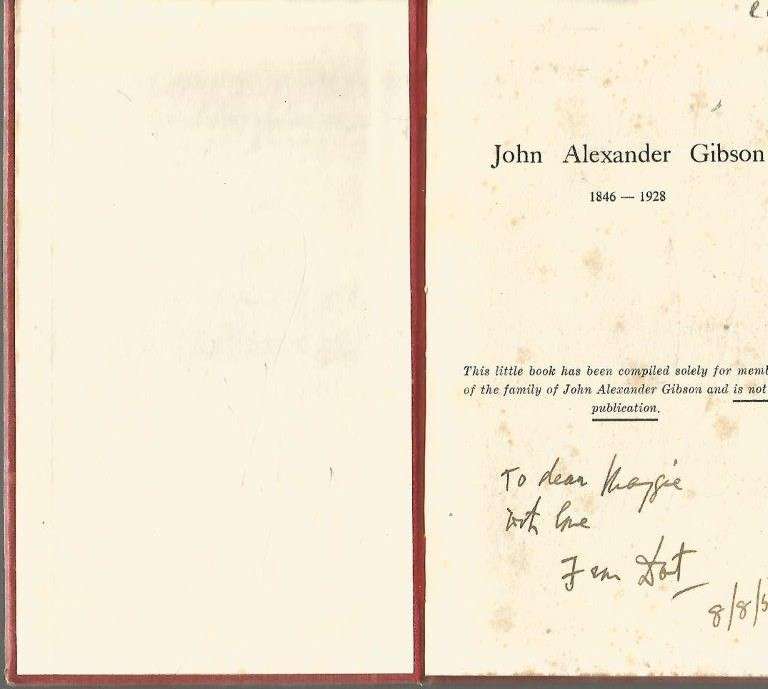 John Alexander Gibson
1846 — 1928
This little book has been compiled solely for memb
of the family of John Alexander Gibson and is not
publication.
To dear Maggie
with love
From Dot
8/8/5